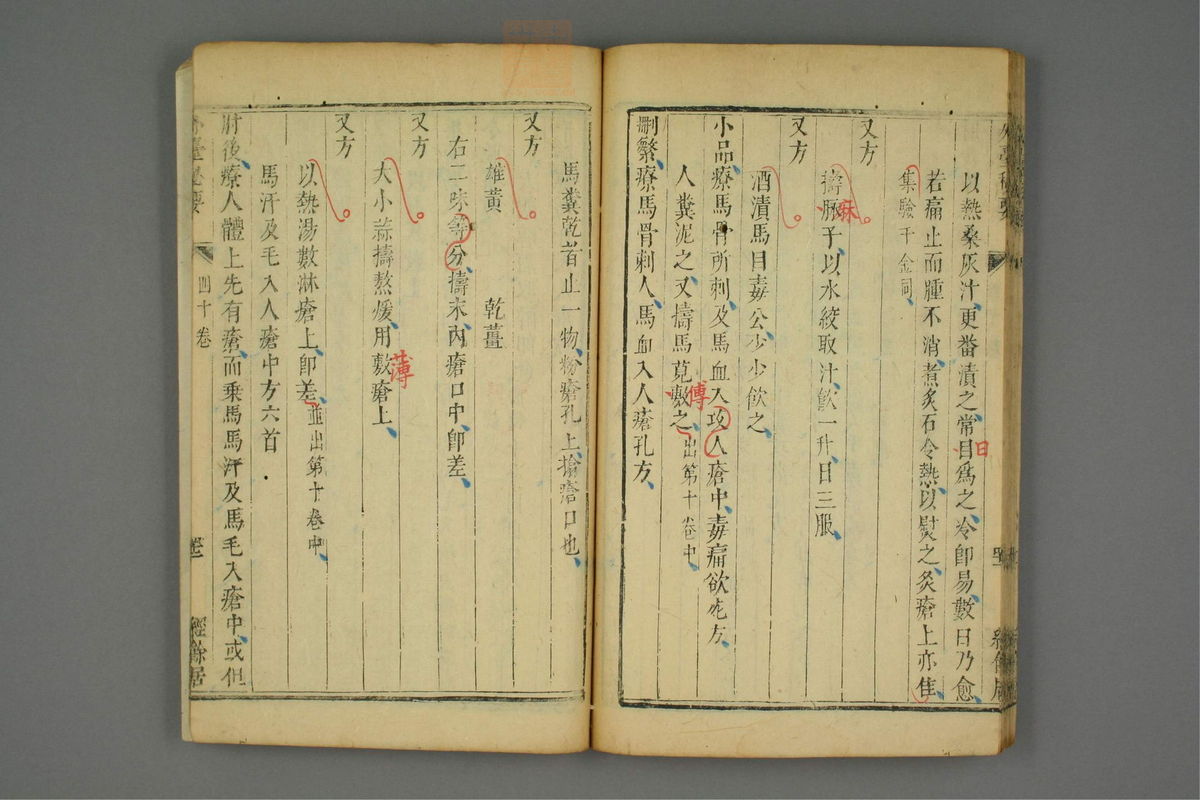 以熱桑灰汁更番漬之常目爲之冷卽易數日乃愈
日
若痛止而腫不消煮炙石令熱以熨之灸瘡上亦佳
集驗千金同
又方
擣豚子以水絞取汁飮一升日三服
麻
又方
酒漬馬目毒公少少飮之
小品療馬骨所刺及馬血入攻人瘡中毒痛欲死方
人糞泥之又擣馬莧敷之出第十卷中
傅
刪繁療馬骨刺人馬血入人瘡孔方
馬糞乾者止一物粉瘡孔上揄瘡口也
又方
雄黃 乾薑
右二味等分擣末內瘡口中卽差
又方
大小蒜擣熬煖用敷瘡上
薄
又方
以熱湯數淋瘡上卽差並出第十卷中
馬汗及毛入人瘡中方六首
肘後療人體上先有瘡而乗馬馬汗及馬毛入瘡中或但
外臺秘要
四十卷
經餘居